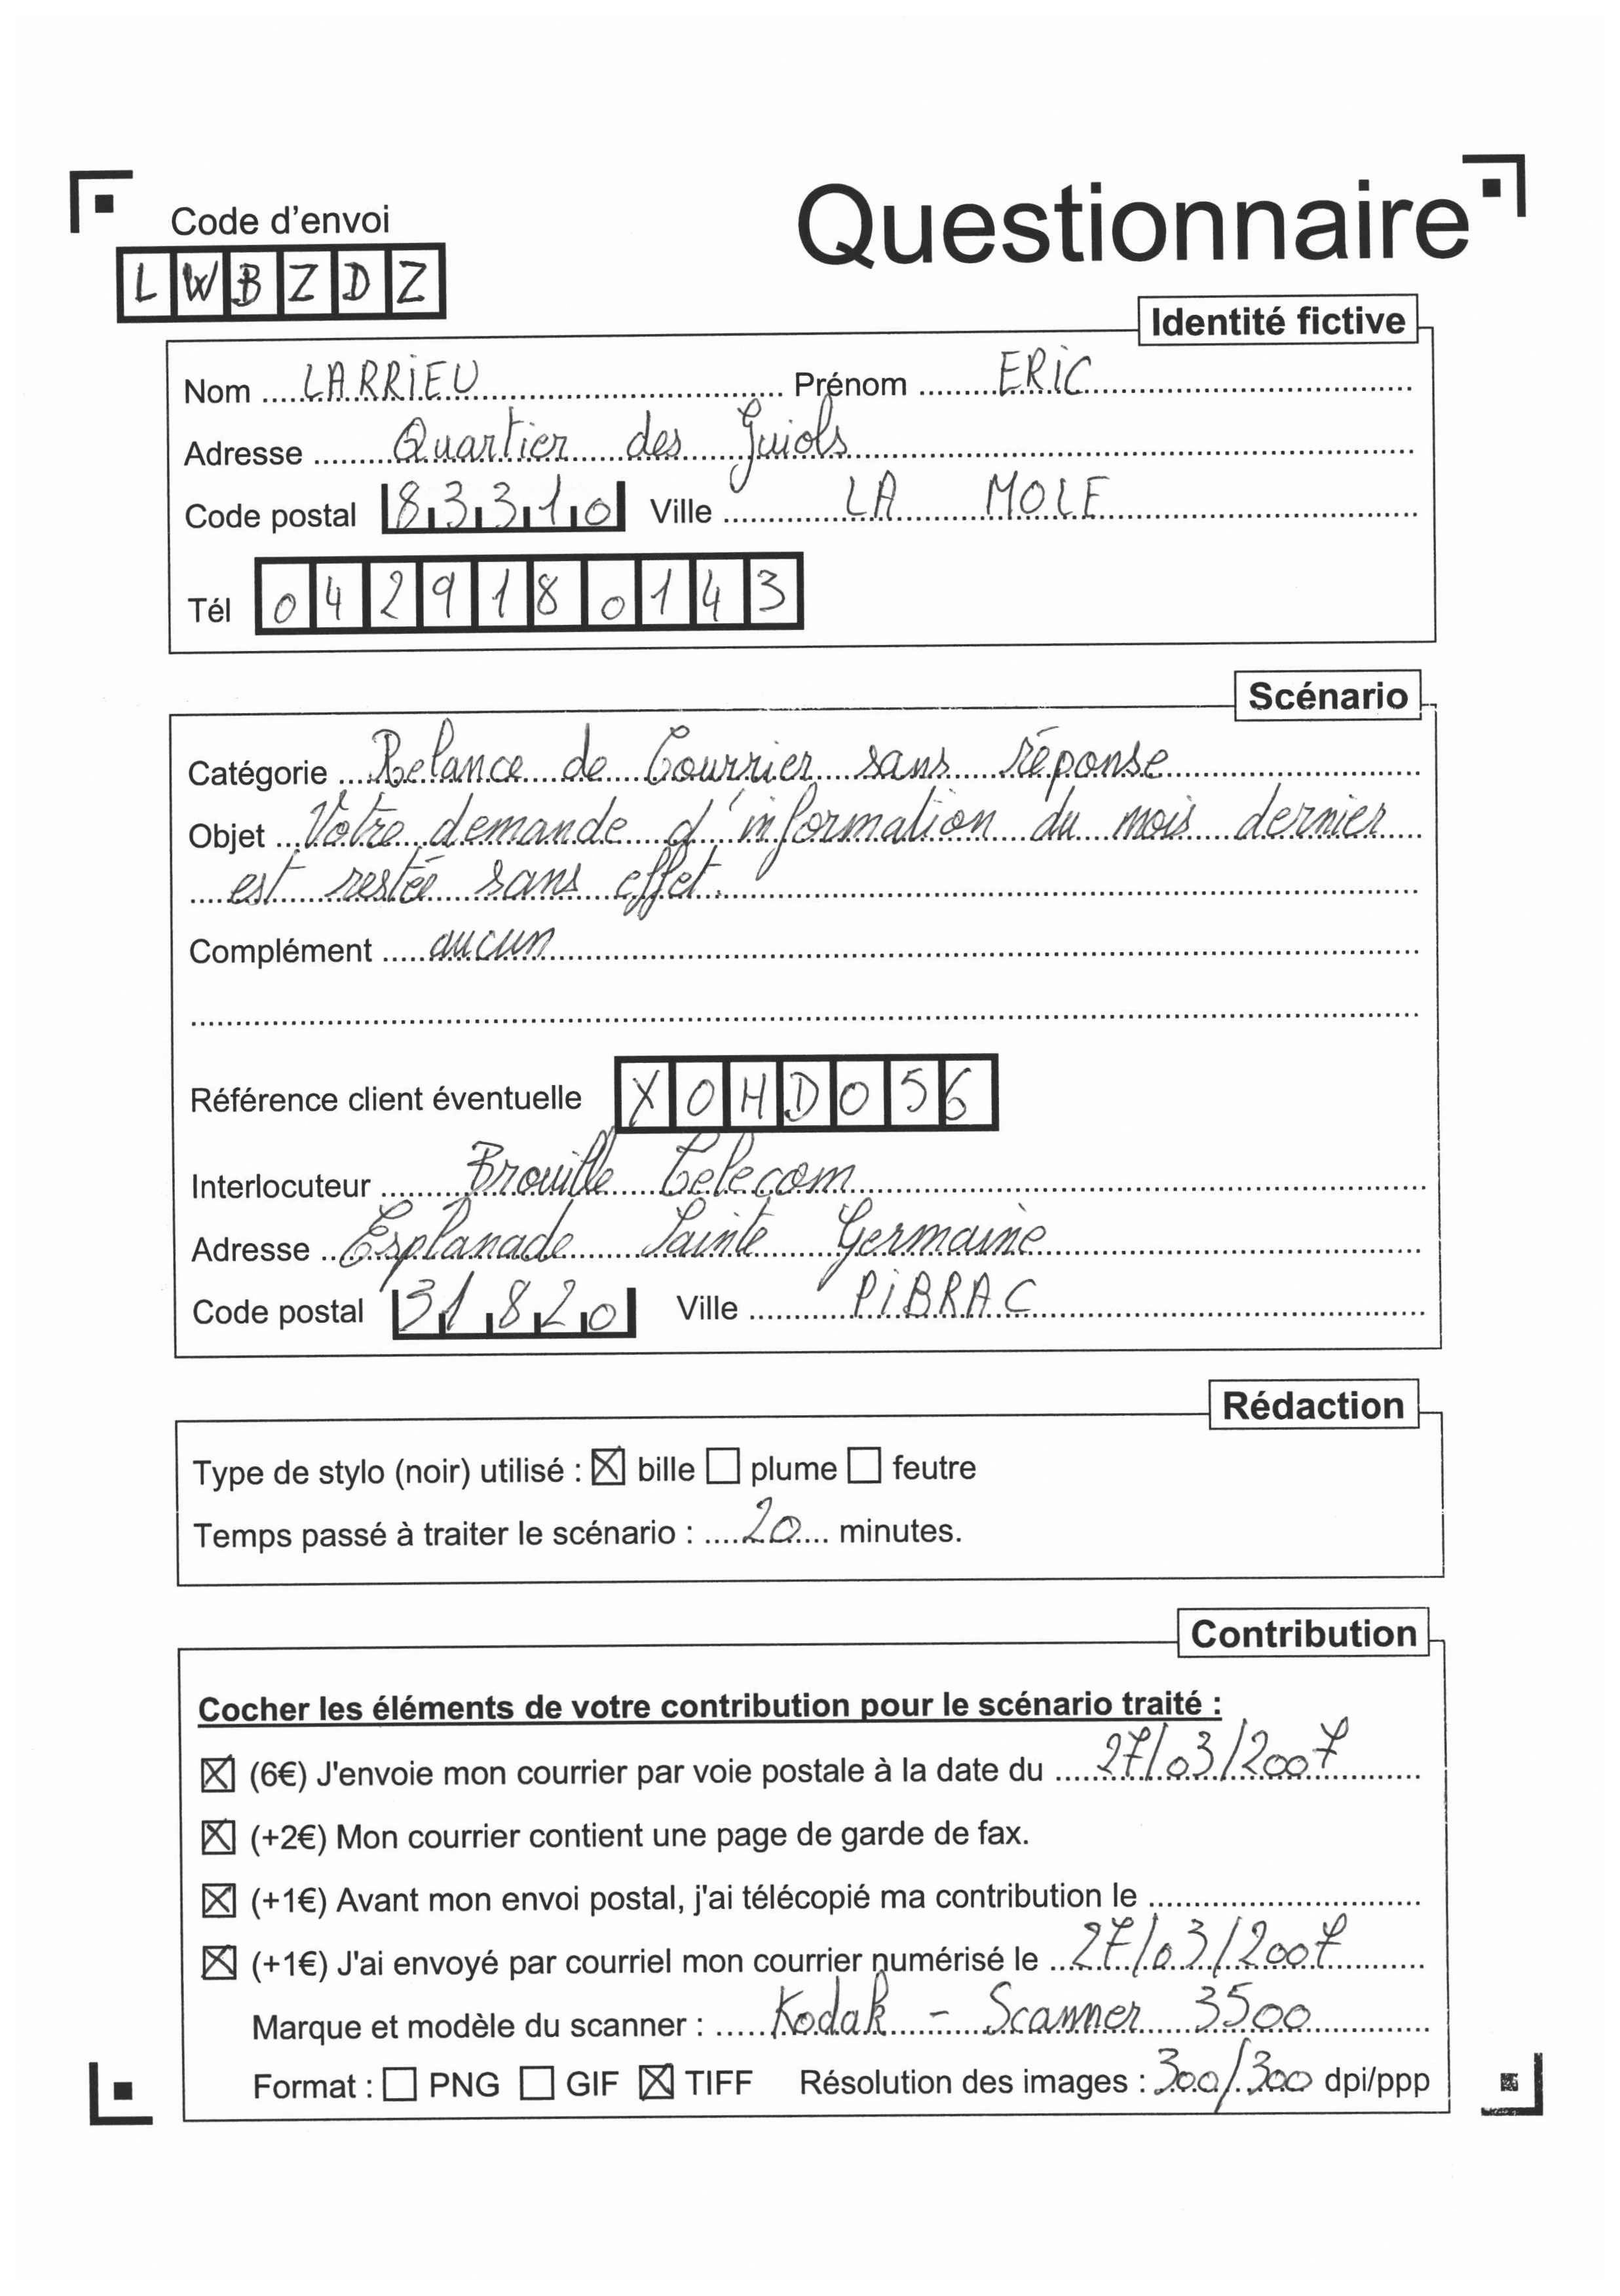 Questionnaire
Code d'envoi
LWBZDZ
Identité fictive
Nom LARRIEU Prénom ERIC
Adresse Quartier des Guiols
Code postal 83310 Ville LA MOLE
Tél 0429180143
Scénario
Catégorie Relance de Courrier sans réponse
Objet Votre demande d'information du mois dernier
est restée sans effet.
Complément aucun
Référence client éventuelle XOHD056
Interlocuteur Brouille Telecom
Adresse Esplanade Sainte Germaine
Code postal 31820 Ville PIBRAC
Rédaction
Type de stylo (noir) utilisé : ☒ bille ☐ plume ☐ feutre
Temps passé à traiter le scénario : 20 minutes.
Contribution
Cocher les éléments de votre contribution pour le scénario traité :
☒ (6€) J'envoie mon courrier par voie postale à la date du 27/03/2007
☒ (+2€) Mon courrier contient une page de garde de fax.
☒ (+1€) Avant mon envoi postal, j'ai télécopié ma contribution le
☒ (+1€) J'ai envoyé par courriel mon courrier numérisé le 27/03/2007
Marque et modèle du scanner : Kodak - Scanner 3500
Format : ☐ PNG ☐ GIF ☒ TIFF Résolution des images : 300/300 dpi/ppp